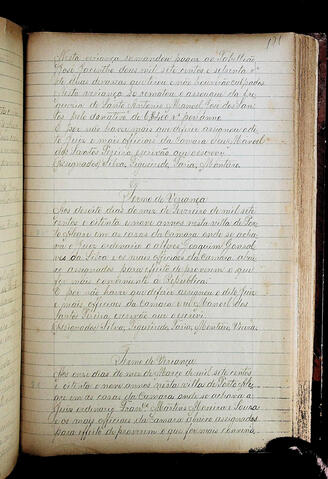 171
Nesta veriança se mandou pagar ao Tabellião
José Jacintho dous mil sete centos e setenta rs
de duas devassas que tirou e não houverão culpados
Nesta veriança se rematou a assougui da fre
guezia de Santo Antonio Manoel José dos San
tos pelo donativo de rs por anno.
E por não haver mais que diferir assignou o di
to Juiz e mais officiais da Camara e eu Manoel
dos Santos Pereira escrivão que escrevi
Assignados, Silva, Figueiredo, Faria, Monteiro
Termo de Veriança
Aos desoito dias do mez de Fevereiro de mil sete
centos e oitenta e nove annos nesta villa de Por
to Alegre em as cazas da Camara onde se acha
va o Juiz ordinario o alferes Joaquim Gonsal
ves da Silva e os mais officiais da Camara abai
xo assignados para effeito de proverem o que
for mais conveniente a Republica.
E por não haver que differir assignou o dito Juiz
e mais officiais da Camara e eu Manoel dos
Santos Pereira, escrivão que o escrevi.
Assignados Silva, Figueiredo, Faria, Monteiro, Vieira.
Termo de Veriança
Aos onze dias do mez de Março de mil sete centos
e oitenta e nove annos nesta villa de Porto Ale
gre em as casas da Camara onde se achava o
Juiz ordinario Franco Martins Moreira e Sousa
e os mais officiaes da Camara abaixo assignados
para effeito de proverem o que for mais conveni